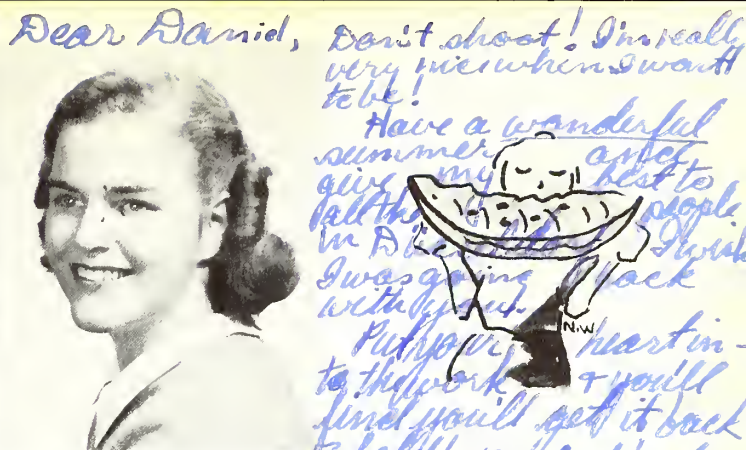 Dear Daniel,
Don't shoot! I'm really
very nice when I want
to be!
Have a wonderful
summer and
give my best to
all the people
in I wish
I was going back
with you.
Put your heart in-
to the work & you'll
find you'll get it back
N.W